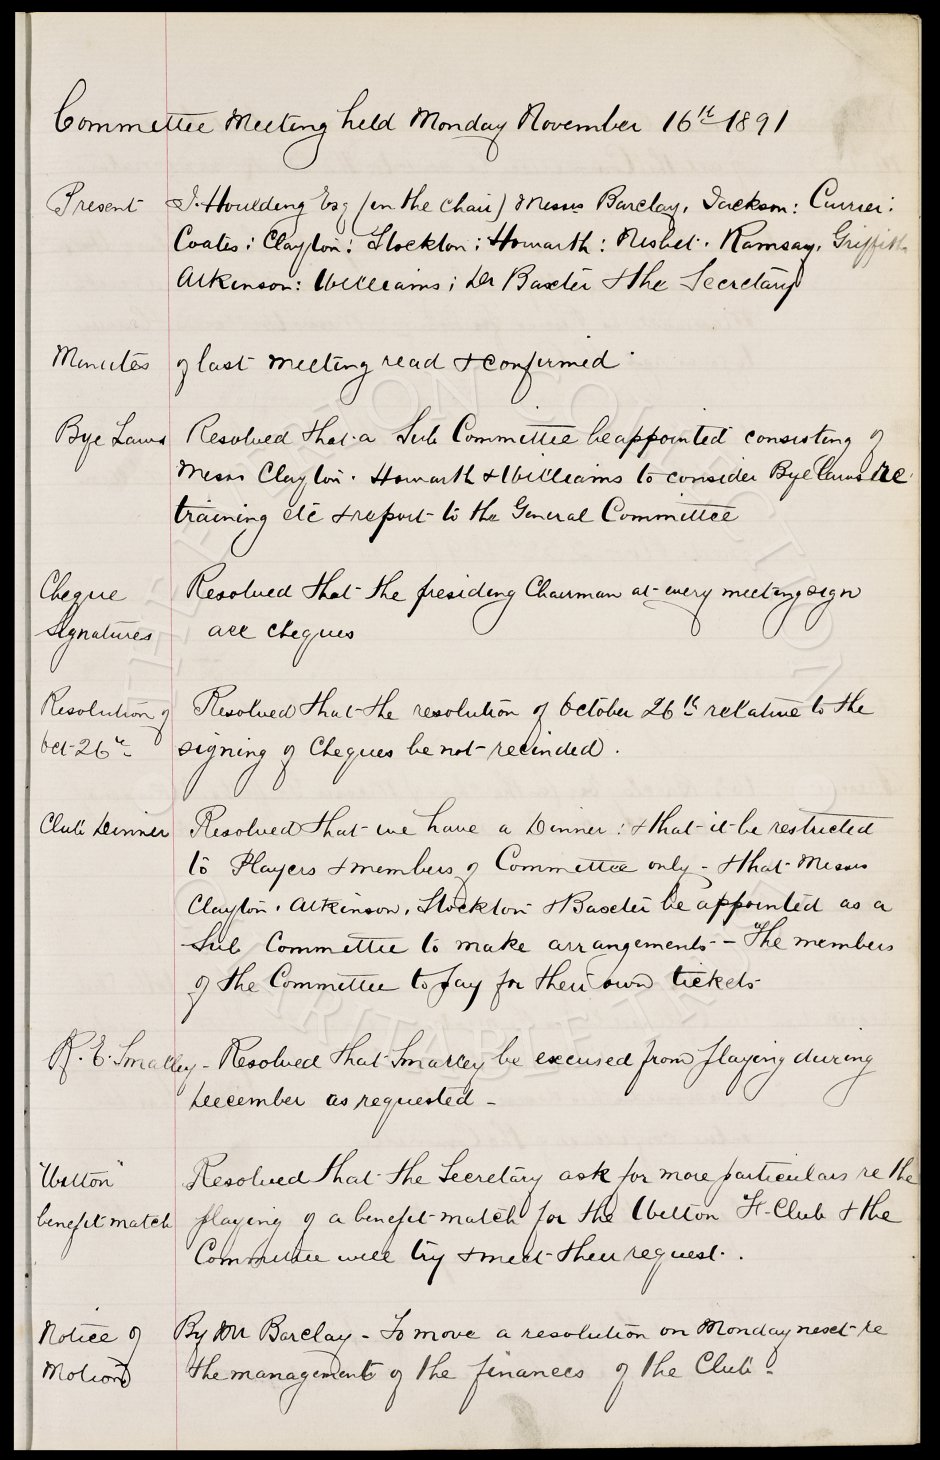 Committee Meeting held Monday November 16th 1891
Present J. Houlding Esq (in the chair) Messrs Barclay, Jackson: Currier:
Coates: Clayton: Stockton: Howarth: Nisbet. Ramsay. Griffiths
Atkinson: Williams: Dr Baxter & the Secretary
Minutes of last meeting read & confirmed.
Bye Laws Resolved that a Sub Committee be appointed consisting of
Messrs Clayton. Howarth & Williams to consider Bye Laws re
training etc & report to the General Committee
Cheque Resolved that the presiding Chairman at every meeting sign
Signatures all cheques
Resolution of Resolved that the resolution of October 26th relative to the
Oct 26th signing of Cheques be not recinded.
Club Dinner Resolved that we have a Dinner: & that it be restricted
to Players & members of Committee only - & that Messrs
Clayton. Atkinson. Stockton & Baxter be appointed as a
Sub Committee to make arrangements - The members
of the Committee to pay for their own tickets
R. E. Smalley - Resolved that Smalley be excused from playing during
December as requested -
"Witton" Resolved that the Secretary ask for more particulars re the
benefit match playing of a benefit match for the Witton F. Club & the
Committee will try & meet their request.
Notice of By Mr Barclay - To move a resolution on Monday next re
Motion the management of the finances of the Club -
EVERTON COLLECTION
CHARITABLE TRUST